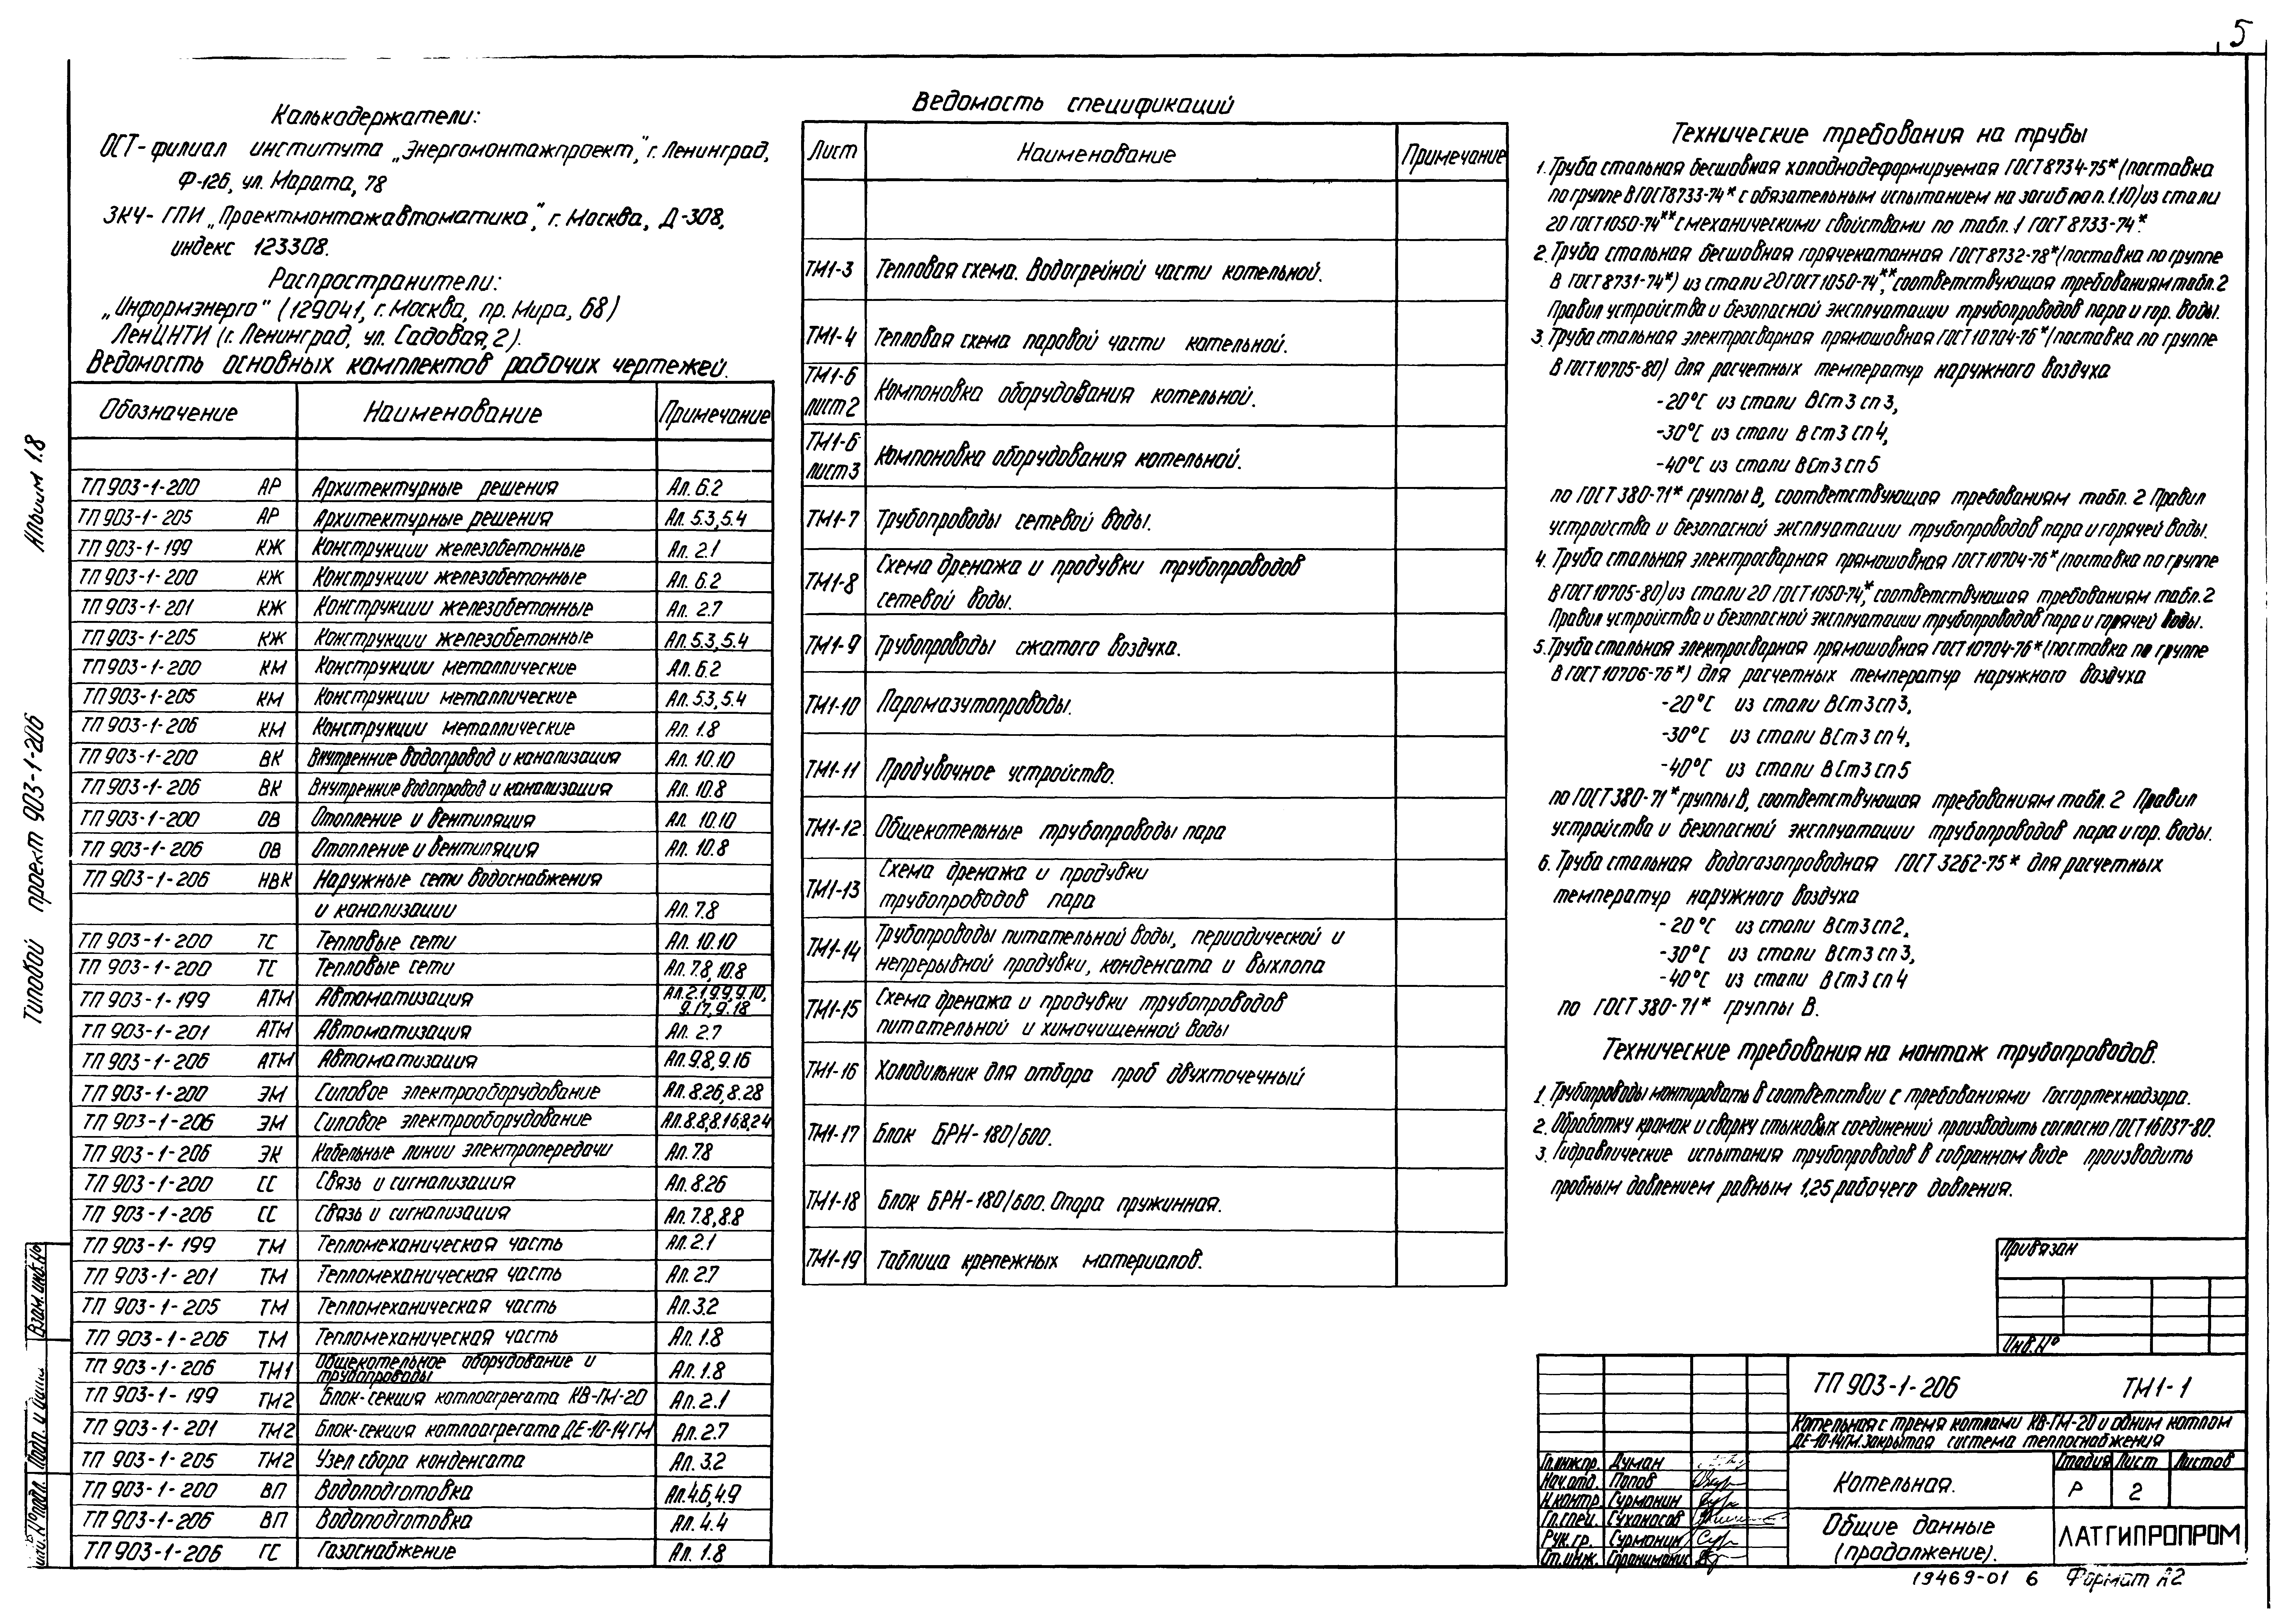 5
Калькодержатели:
ОСТ- филиал института „Энергомонтажпроект", г. Ленинград,
Ф-126, ул. Марата, 78
ЗКЧ- ГПИ „Проектмонтажавтоматика", г. Москва, Д-308,
индекс 123308.
Распространители:
„Информэнерго" (129041, г. Москва, пр. Мира, 68)
ЛенЦНТИ (г. Ленинград, ул. Садовая, 2).
Ведомость основных комплектов рабочих чертежей.
Обозначение Наименование Примечание
ТП 903-1-200 АР Архитектурные решения Ал. 6.2
ТП 903-1-205 АР Архитектурные решения Ал. 5.3, 5.4
ТП 903-1-199 КЖ Конструкции железобетонные Ал. 2.1
ТП 903-1-200 КЖ Конструкции железобетонные Ал. 6.2
ТП 903-1-201 КЖ Конструкции железобетонные Ал. 2.7
ТП 903-1-205 КЖ Конструкции железобетонные Ал. 5.3, 5.4
ТП 903-1-200 КМ Конструкции металлические Ал. 6.2
ТП 903-1-205 КМ Конструкции металлические Ал. 5.3, 5.4
ТП 903-1-206 КМ Конструкции металлические Ал. 1.8
ТП 903-1-200 ВК Внутренние водопровод и канализация Ал. 10.10
ТП 903-1-206 ВК Внутренние водопровод и канализация Ал. 10.8
ТП 903-1-200 ОВ Отопление и вентиляция Ал. 10.10
ТП 903-1-206 ОВ Отопление и вентиляция Ал. 10.8
ТП 903-1-206 НВК Наружные сети водоснабжения
и канализации Ал. 7.8
ТП 903-1-200 ТС Тепловые сети Ал. 10.10
ТП 903-1-200 ТС Тепловые сети Ал. 7.8, 10.8
ТП 903-1-199 АТМ Автоматизация Ал. 2.1, 9.9, 9.10,
9.17, 9.18
ТП 903-1-201 АТМ Автоматизация Ал. 2.7
ТП 903-1-206 АТМ Автоматизация Ал. 9.8, 9.16
ТП 903-1-200 ЭМ Силовое электрооборудование Ал. 8.26, 8.28
ТП 903-1-206 ЭМ Силовое электрооборудование Ал. 8.8, 8.16, 8.24
ТП 903-1-206 ЭК Кабельные линии электропередачи Ал. 7.8
ТП 903-1-200 СС Связь и сигнализация Ал. 8.26
ТП 903-1-206 СС Связь и сигнализация Ал. 7.8, 8.8
ТП 903-1-199 ТМ Тепломеханическая часть Ал. 2.1
ТП 903-1-201 ТМ Тепломеханическая часть Ал. 2.7
ТП 903-1-205 ТМ Тепломеханическая часть Ал. 3.2
ТП 903-1-206 ТМ Тепломеханическая часть Ал. 1.8
ТП 903-1-206 ТМ1 Общекотельное оборудование и
трубопроводы Ал. 1.8
ТП 903-1-199 ТМ2 Блок-секция котлоагрегата КВ-ГМ-20 Ал. 2.1
ТП 903-1-201 ТМ2 Блок-секция котлоагрегата ДЕ-10-14ГМ Ал. 2.7
ТП 903-1-205 ТМ2 Узел сбора конденсата Ал. 3.2
ТП 903-1-200 ВП Водоподготовка Ал. 4.6, 4.9
ТП 903-1-206 ВП Водоподготовка Ал. 4.4
ТП 903-1-206 ГС Газоснабжение Ал. 1.8
Ведомость спецификаций
Лист Наименование Примечание
ТМ1-3 Тепловая схема. Водогрейной части котельной.
ТМ1-4 Тепловая схема паровой части котельной.
ТМ1-6
лист 2 Компоновка оборудования котельной.
ТМ1-6
лист 3 Компоновка оборудования котельной.
ТМ1-7 Трубопроводы сетевой воды.
ТМ1-8 Схема дренажа и продувки трубопроводов
сетевой воды.
ТМ1-9 Трубопроводы сжатого воздуха.
ТМ1-10 Паромазутопроводы.
ТМ1-11 Продувочное устройство.
ТМ1-12 Общекотельные трубопроводы пара
ТМ1-13 Схема дренажа и продувки
трубопроводов пара
ТМ1-14 Трубопроводы питательной воды, периодической и
непрерывной продувки, конденсата и выхлопа
ТМ1-15 Схема дренажа и продувки трубопроводов
питательной и химочищенной воды
ТМ1-16 Холодильник для отбора проб двухточечный
ТМ1-17 Блок БРН-180/600.
ТМ1-18 Блок БРН-180/600. Опора пружинная.
ТМ1-19 Таблица крепежных материалов.
Технические требования на трубы
1. Труба стальная бесшовная холоднодеформируемая ГОСТ 8734-75* (поставка
по группе В ГОСТ 8733-74* с обязательным испытанием на загиб по п. 1.10) из стали
20 ГОСТ 1050-74** с механическими свойствами по табл. 1 ГОСТ 8733-74*.
2. Труба стальная бесшовная горячекатанная ГОСТ 8732-78* (поставка по группе
В ГОСТ 8731-74*) из стали 20 ГОСТ 1050-74**, соответствующая требованиям табл. 2
Правил устройства и безопасной эксплуатации трубопроводов пара и гор. воды.
3. Труба стальная электросварная прямошовная ГОСТ 10704-76* (поставка по группе
В ГОСТ 10705-80) для расчетных температур наружного воздуха
-20°С из стали ВСт3сп3,
-30°С из стали ВСт3сп4,
-40°С из стали ВСт3сп5
по ГОСТ 380-71* группы В, соответствующая требованиям табл. 2 Правил
устройства и безопасной эксплуатации трубопроводов пара и горячей воды.
4. Труба стальная электросварная прямошовная ГОСТ 10704-76* (поставка по группе
В ГОСТ 10705-80) из стали 20 ГОСТ 1050-74*, соответствующая требованиям табл. 2
Правил устройства и безопасной эксплуатации трубопроводов пара и горячей воды.
5. Труба стальная электросварная прямошовная ГОСТ 10704-76* (поставка по группе
В ГОСТ 10706-76*) для расчетных температур наружного воздуха
-20°С из стали ВСт3сп3,
-30°С из стали ВСт3сп4,
-40°С из стали ВСт3сп5
по ГОСТ 380-71* группы В, соответствующая требованиям табл. 2 Правил
устройства и безопасной эксплуатации трубопроводов пара и гор. воды.
6. Труба стальная водогазопроводная ГОСТ 3262-75* для расчетных
температур наружного воздуха
-20°С из стали ВСт3сп2,
-30°С из стали ВСт3сп3,
-40°С из стали ВСт3сп4
по ГОСТ 380-71* группы В.
Технические требования на монтаж трубопроводов.
1. Трубопроводы монтировать в соответствии с требованиями Госгортехнадзора.
2. Обработку кромок и сварку стыковых соединений производить согласно ГОСТ 16037-80.
3. Гидравлические испытания трубопроводов в собранном виде производить
пробным давлением равным 1,25 рабочего давления.
Привязан
Инв. №
ТП 903-1-206 ТМ1-1
Котельная с тремя котлами КВ-ГМ-20 и одним котлом
ДЕ-10-14ГМ. Закрытая система теплоснабжения
Гл. инж. пр. Думан
Нач. отд. Попов
Н. контр. Сурманин
Гл. спец. Суханосов
Рук. гр. Сурманин
Ст. инж.
Котельная.
Стадия Лист Листов
Р 2
Общие данные
(продолжение).
ЛАТГИПРОПРОМ
19469-01 6 Формат А2
Альбом 1.8
Типовой проект 903-1-206
Взам. инв. №
Подп. и дата
Инв. № подл.